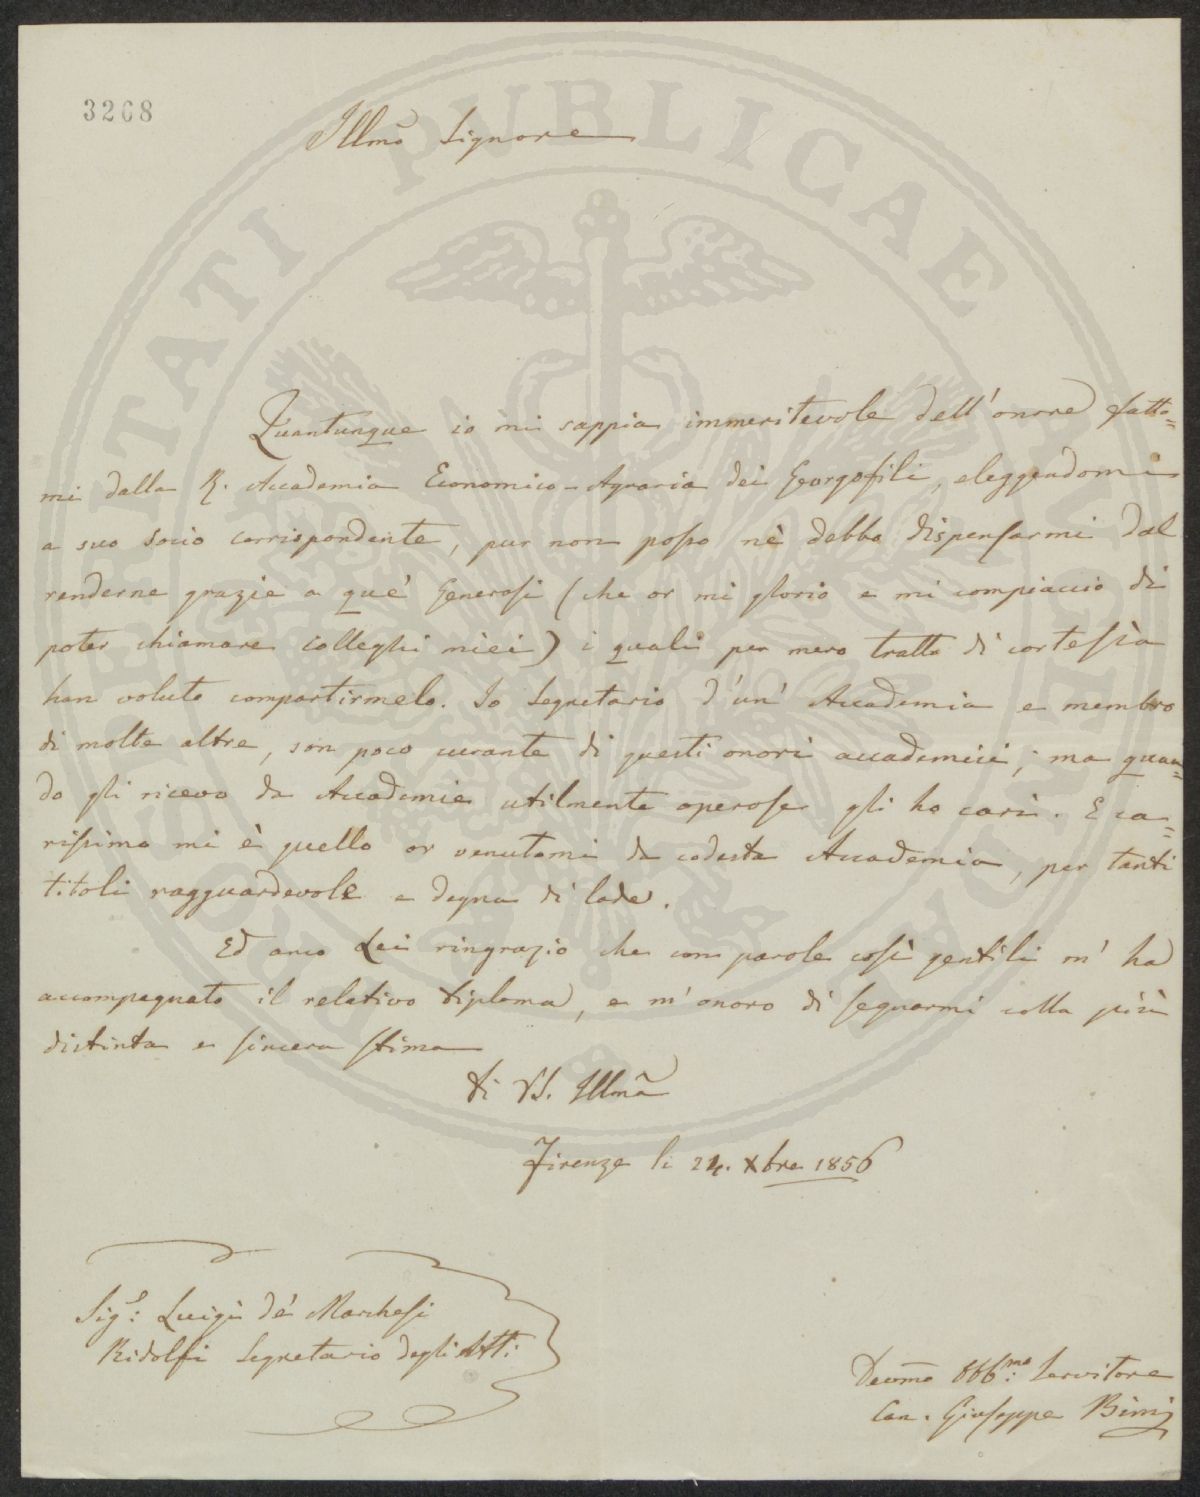 3268
Illmo Signore
Quantunque io mi sappia immeritevole dell'onore fatto=
mi dalla R. Accademia Economico-Agraria dei Georgofili, eleggendomi
a suo socio corrispondente, pur non posso nè debbo dispensarmi dal
renderne grazie a que' Generosi (che or mi glorio e mi compiaccio di
poter chiamare colleghi miei) i quali per mero tratto di cortesia
han voluto compartirmelo. Io Segretario d'un' Accademia e membro
di molte altre, son poco curante di questi onori accademici; ma quan=
do gli ricevo da Accademie utilmente operose gli ho cari. E ca=
rissimo mi è quello or venutomi da codesta Accademia, per tanti
titoli ragguardevole e degna di lode.
Ed anco Lei ringrazio che con parole così gentili m'ha
accompagnato il relativo diploma, e m'onoro di segnarmi colla più
distinta e sincera stima
di VS. Illma
Firenze li 24. Xbre 1856
Sigr: Luigi de' Marchesi
Ridolfi Segretario degli Atti
Devmo Obbmo: Servitore
Can. Giuseppe Bini
PUBLICAE